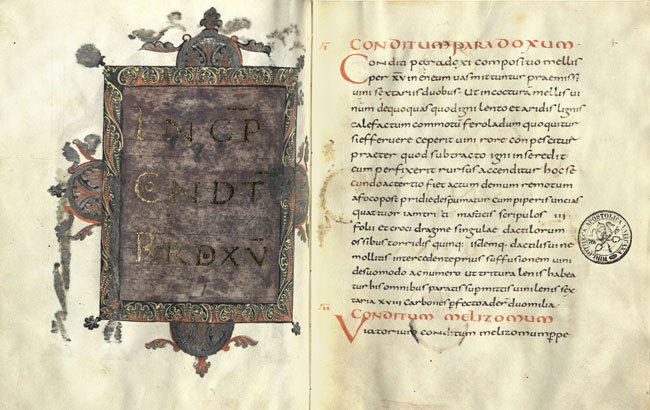 INCP
CNDT
BRDXV̄
CONDITUM PARADOXUM
Conditi paradoxi compositio mellis
per xv in eneum vas mittuntur praemissi
vini sextariis duobus. Ut in coctura mellis vi
num dequoquas quod igni lento et aridis lignis
calefactum commotū ferola dum quoquitur
si effervere ceperit vini rore conpescitur
praeter quod subtracto igni in se redit
cum perfixerit rursus accenditur hoc se
cundo ac tertio fiet ac tum demum remotum
a foco post pridie despumatur cum piperis uncias
quattuor masticis scripulos iii
folii et croci dragme singulae dactilorum
ossibus torridis quinq: isdemq: dactilis vi ne
mollitis intercedente prius suffusione vini
de suo modo ac numero ut tritura lenis habea
tur his omnibus paratis supmittis vini lenis sex
taria xviii carbones pfecto aderduo milia
CONDITUM MELIZOMUM
Viatorium conditum melizomum ppe
BIBLIOTHECA APOSTOLICA VATICANA